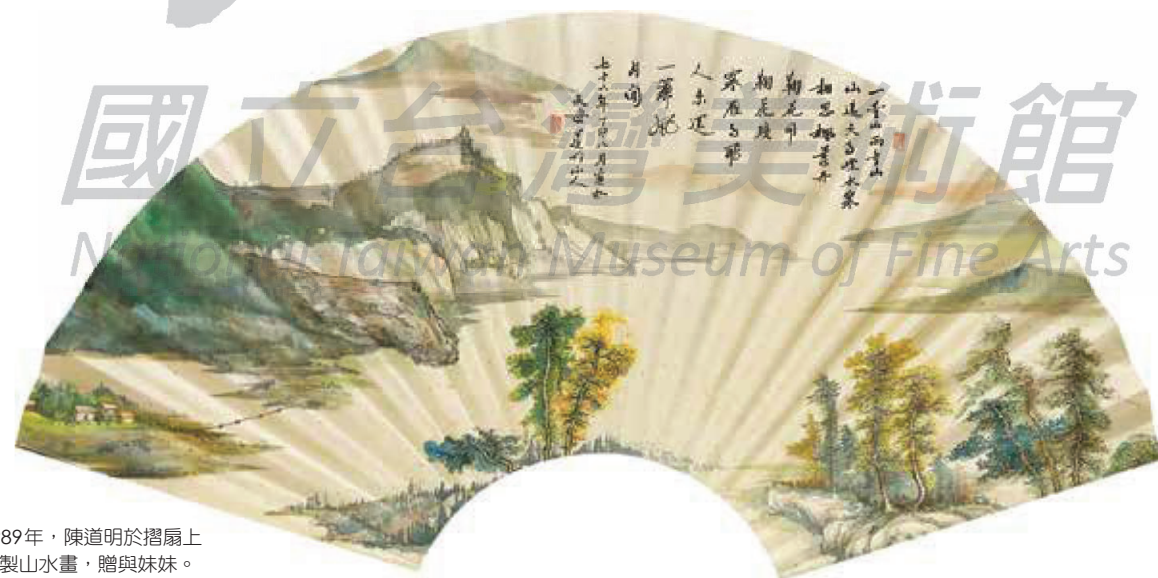 國立台灣美術館
National Taiwan Museum of Fine Arts
一重山兩重山
山遠天高煙水寒
相思楓葉丹
鞠花開
鞠花殘
塞雁高飛
人未還
一簾風
月閒
七十六年丁卯八月
89年，陳道明於摺扇上
製山水畫，贈與妹妹。